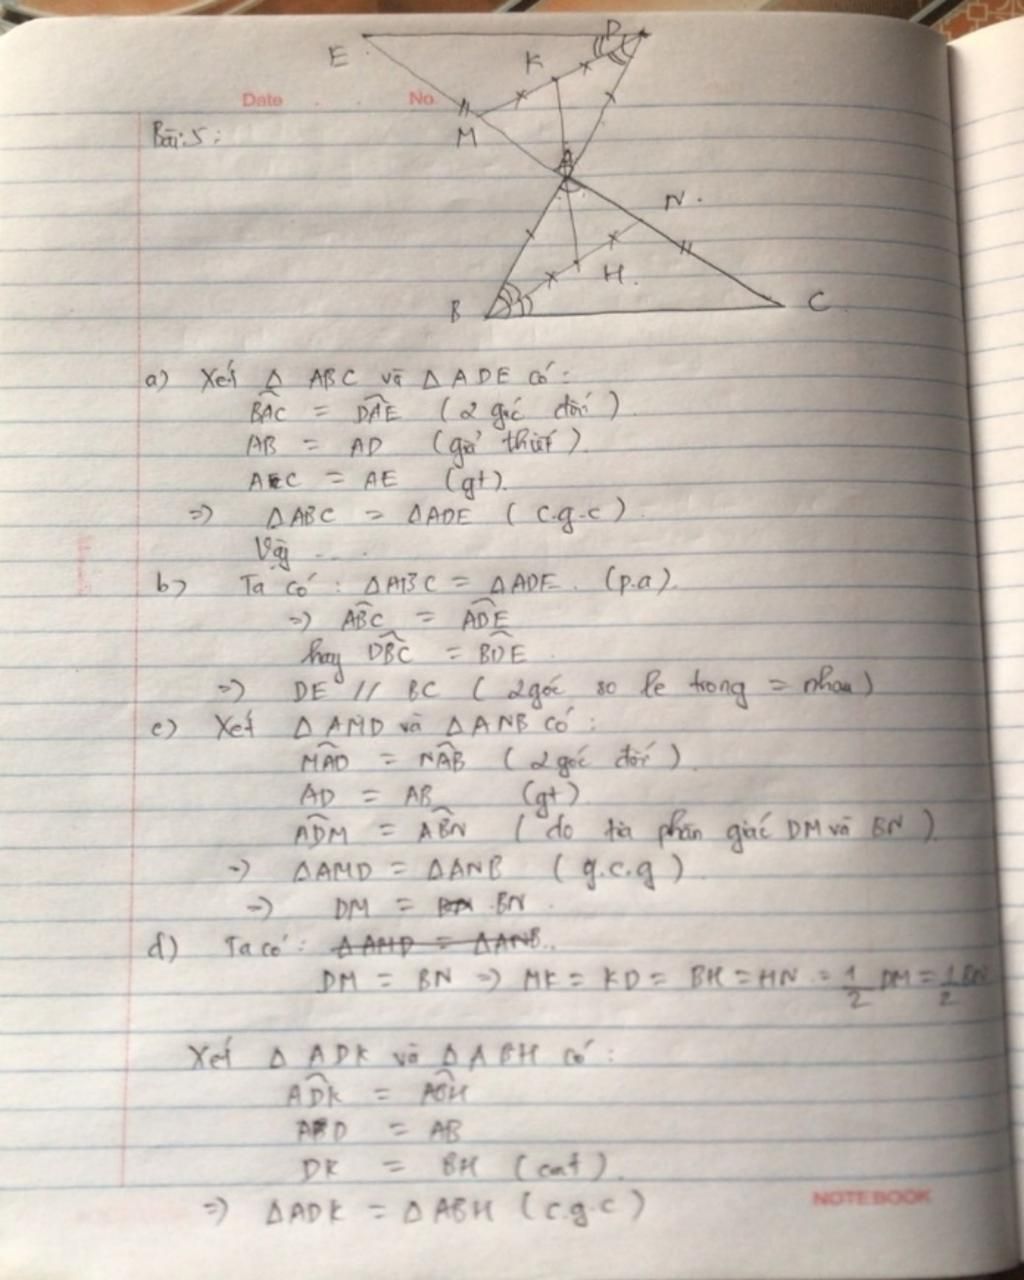 E
D
K
Date No
M
Bài 5:
A
N.
H.
B
C
a) Xét Δ ABC và Δ ADE có:
BAC = DAE (2 góc đối)
AB = AD (giả thiết).
AC = AE (gt).
=> ΔABC = ΔADE (c.g.c).
Vậy ....
b) Ta có: ΔABC = ΔADE. (p.a).
=> ABC = ADE
hay DBC = BDE.
=> DE // BC (2 góc so le trong = nhau)
c) Xét Δ AMD và Δ ANB có:
MAD = NAB (2 góc đối).
AD = AB (gt)
ADM = ABN (do tia phân giác DM và BN).
=> ΔAMD = ΔANB (g.c.g).
=> DM = BN.
d) Ta có: ΔAMD = ΔANB..
DM = BN => MK = KD = BH = HN = 1/2 DM = 1/2 BN
Xét Δ ADK và Δ ABH có:
ADK = ABH
AD = AB
DK = BH (cmt).
=> ΔADK = ΔABH (c.g.c)
NOTEBOOK